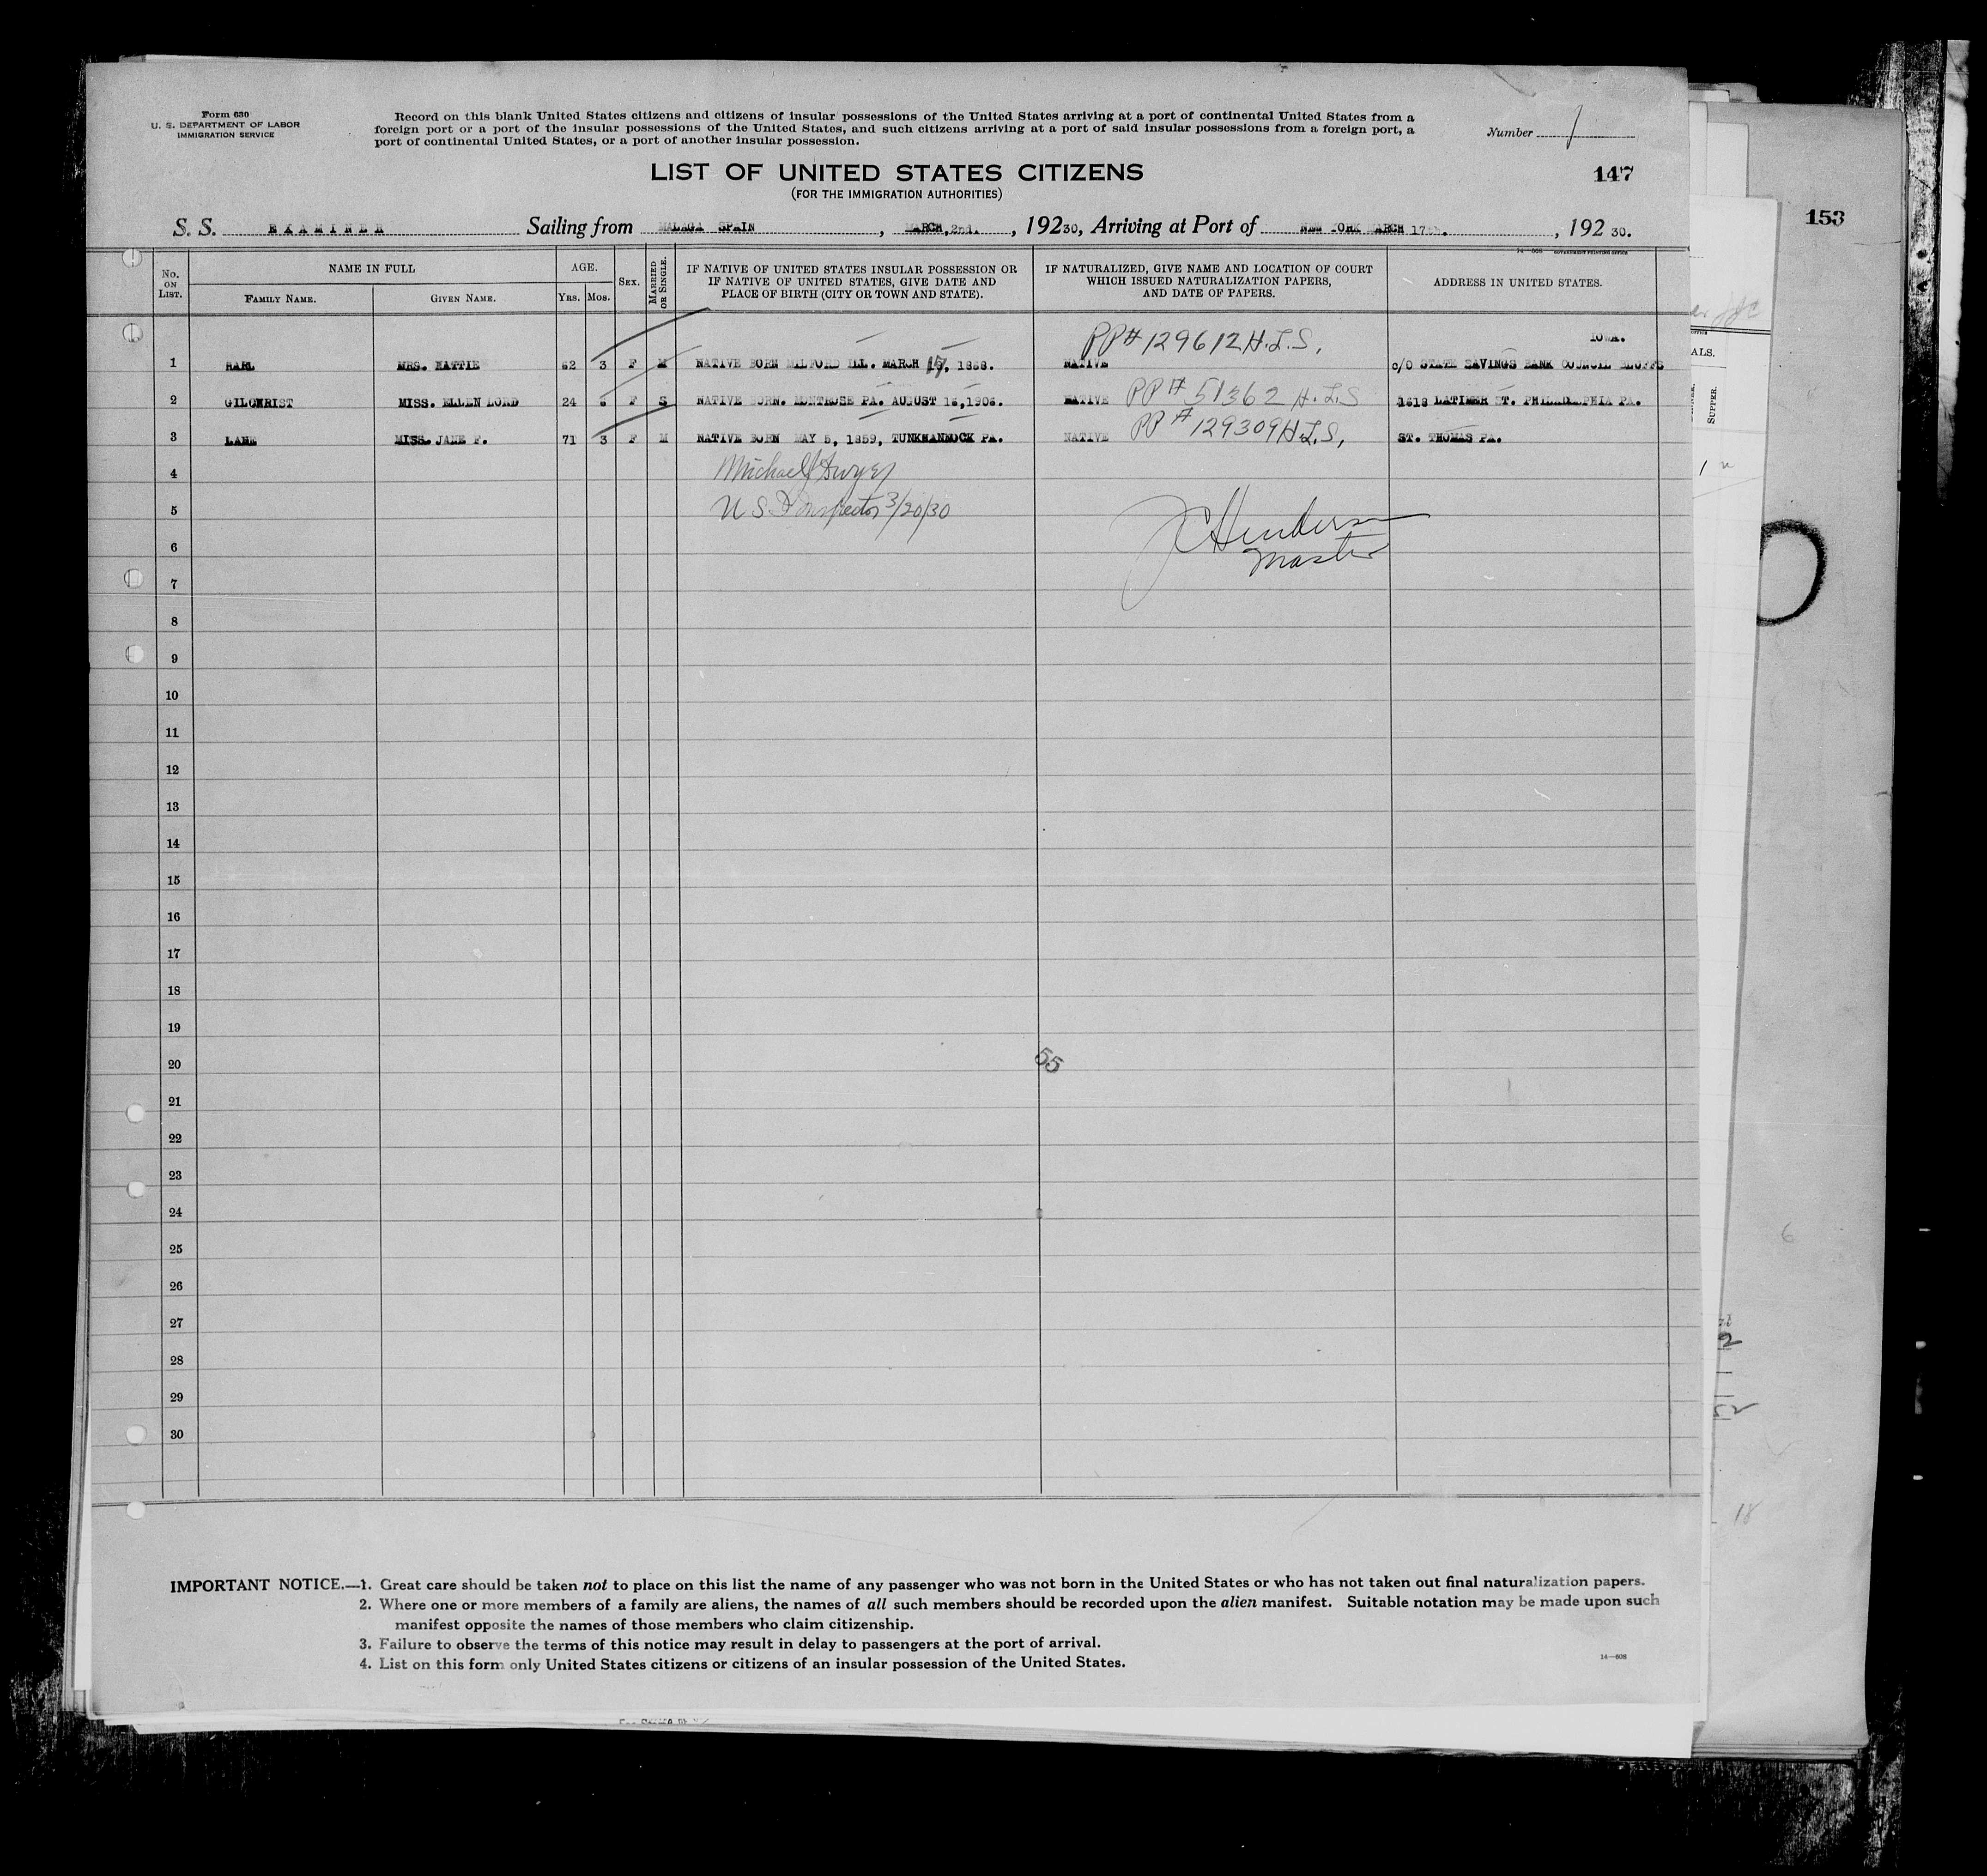 Form 630
U. S. DEPARTMENT OF LABOR
IMMIGRATION SERVICE
Record on this blank United States citizens and citizens of insular possessions of the United States arriving at a port of continental United States from a
foreign port or a port of the insular possessions of the United States, and such citizens arriving at a port of said insular possessions from a foreign port, a
port of continental United States, or a port of another insular possession.
Number 1
LIST OF UNITED STATES CITIZENS
147
(FOR THE IMMIGRATION AUTHORITIES)
153
S. S. EXAMINER Sailing from MALAGA SPAIN, MARCH, 2nd., 19230, Arriving at Port of NEW YORK MARCH 17th., 192 30.
No. ON LIST.
NAME IN FULL
FAMILY NAME.
GIVEN NAME.
AGE.
YRS.
MOS.
SEX.
MARRIED OR SINGLE.
IF NATIVE OF UNITED STATES INSULAR POSSESSION OR
IF NATIVE OF UNITED STATES, GIVE DATE AND
PLACE OF BIRTH (CITY OR TOWN AND STATE).
IF NATURALIZED, GIVE NAME AND LOCATION OF COURT
WHICH ISSUED NATURALIZATION PAPERS,
AND DATE OF PAPERS.
ADDRESS IN UNITED STATES.
14—608 GOVERNMENT PRINTING OFFICE
PP# 129612 H.L.S. IOWA.
1 HARL MRS. HATTIE 62 3 F M NATIVE BORN MILFORD ILL. MARCH 1868. NATIVE c/o STATE SAVINGS BANK COUNCIL BLUFFS
2 GILCHRIST MISS. ELLEN LORD 24 6 F S NATIVE BORN. MONTROSE PA. AUGUST 1906. NATIVE PP# 51362 H.L.S 1618 LATIMER ST. PHILADELPHIA PA.
3 LANE MISS. JANE F. 71 3 F M NATIVE BORN MAY 5, 1859, TUNKHANNOCK PA. NATIVE PP# 129309 H.L.S. ST. THOMAS PA.
4 Michael J Dwyer
5 U S I Inspector 3/20/30
J C Henderson
6 Master
7
8
9
10
11
12
13
14
15
16
17
18
19
20
55
21
22
23
24
25
26
27
28
29
30
ALS.
SUPPER.
6
18
IMPORTANT NOTICE.—1. Great care should be taken not to place on this list the name of any passenger who was not born in the United States or who has not taken out final naturalization papers.
2. Where one or more members of a family are aliens, the names of all such members should be recorded upon the alien manifest. Suitable notation may be made upon such
manifest opposite the names of those members who claim citizenship.
3. Failure to observe the terms of this notice may result in delay to passengers at the port of arrival.
4. List on this form only United States citizens or citizens of an insular possession of the United States.
14—608